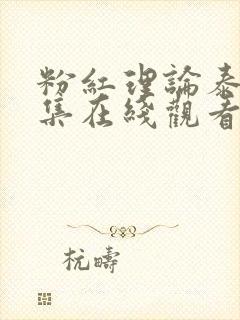 粉紅理論泰
集在綫觀看
杭疇